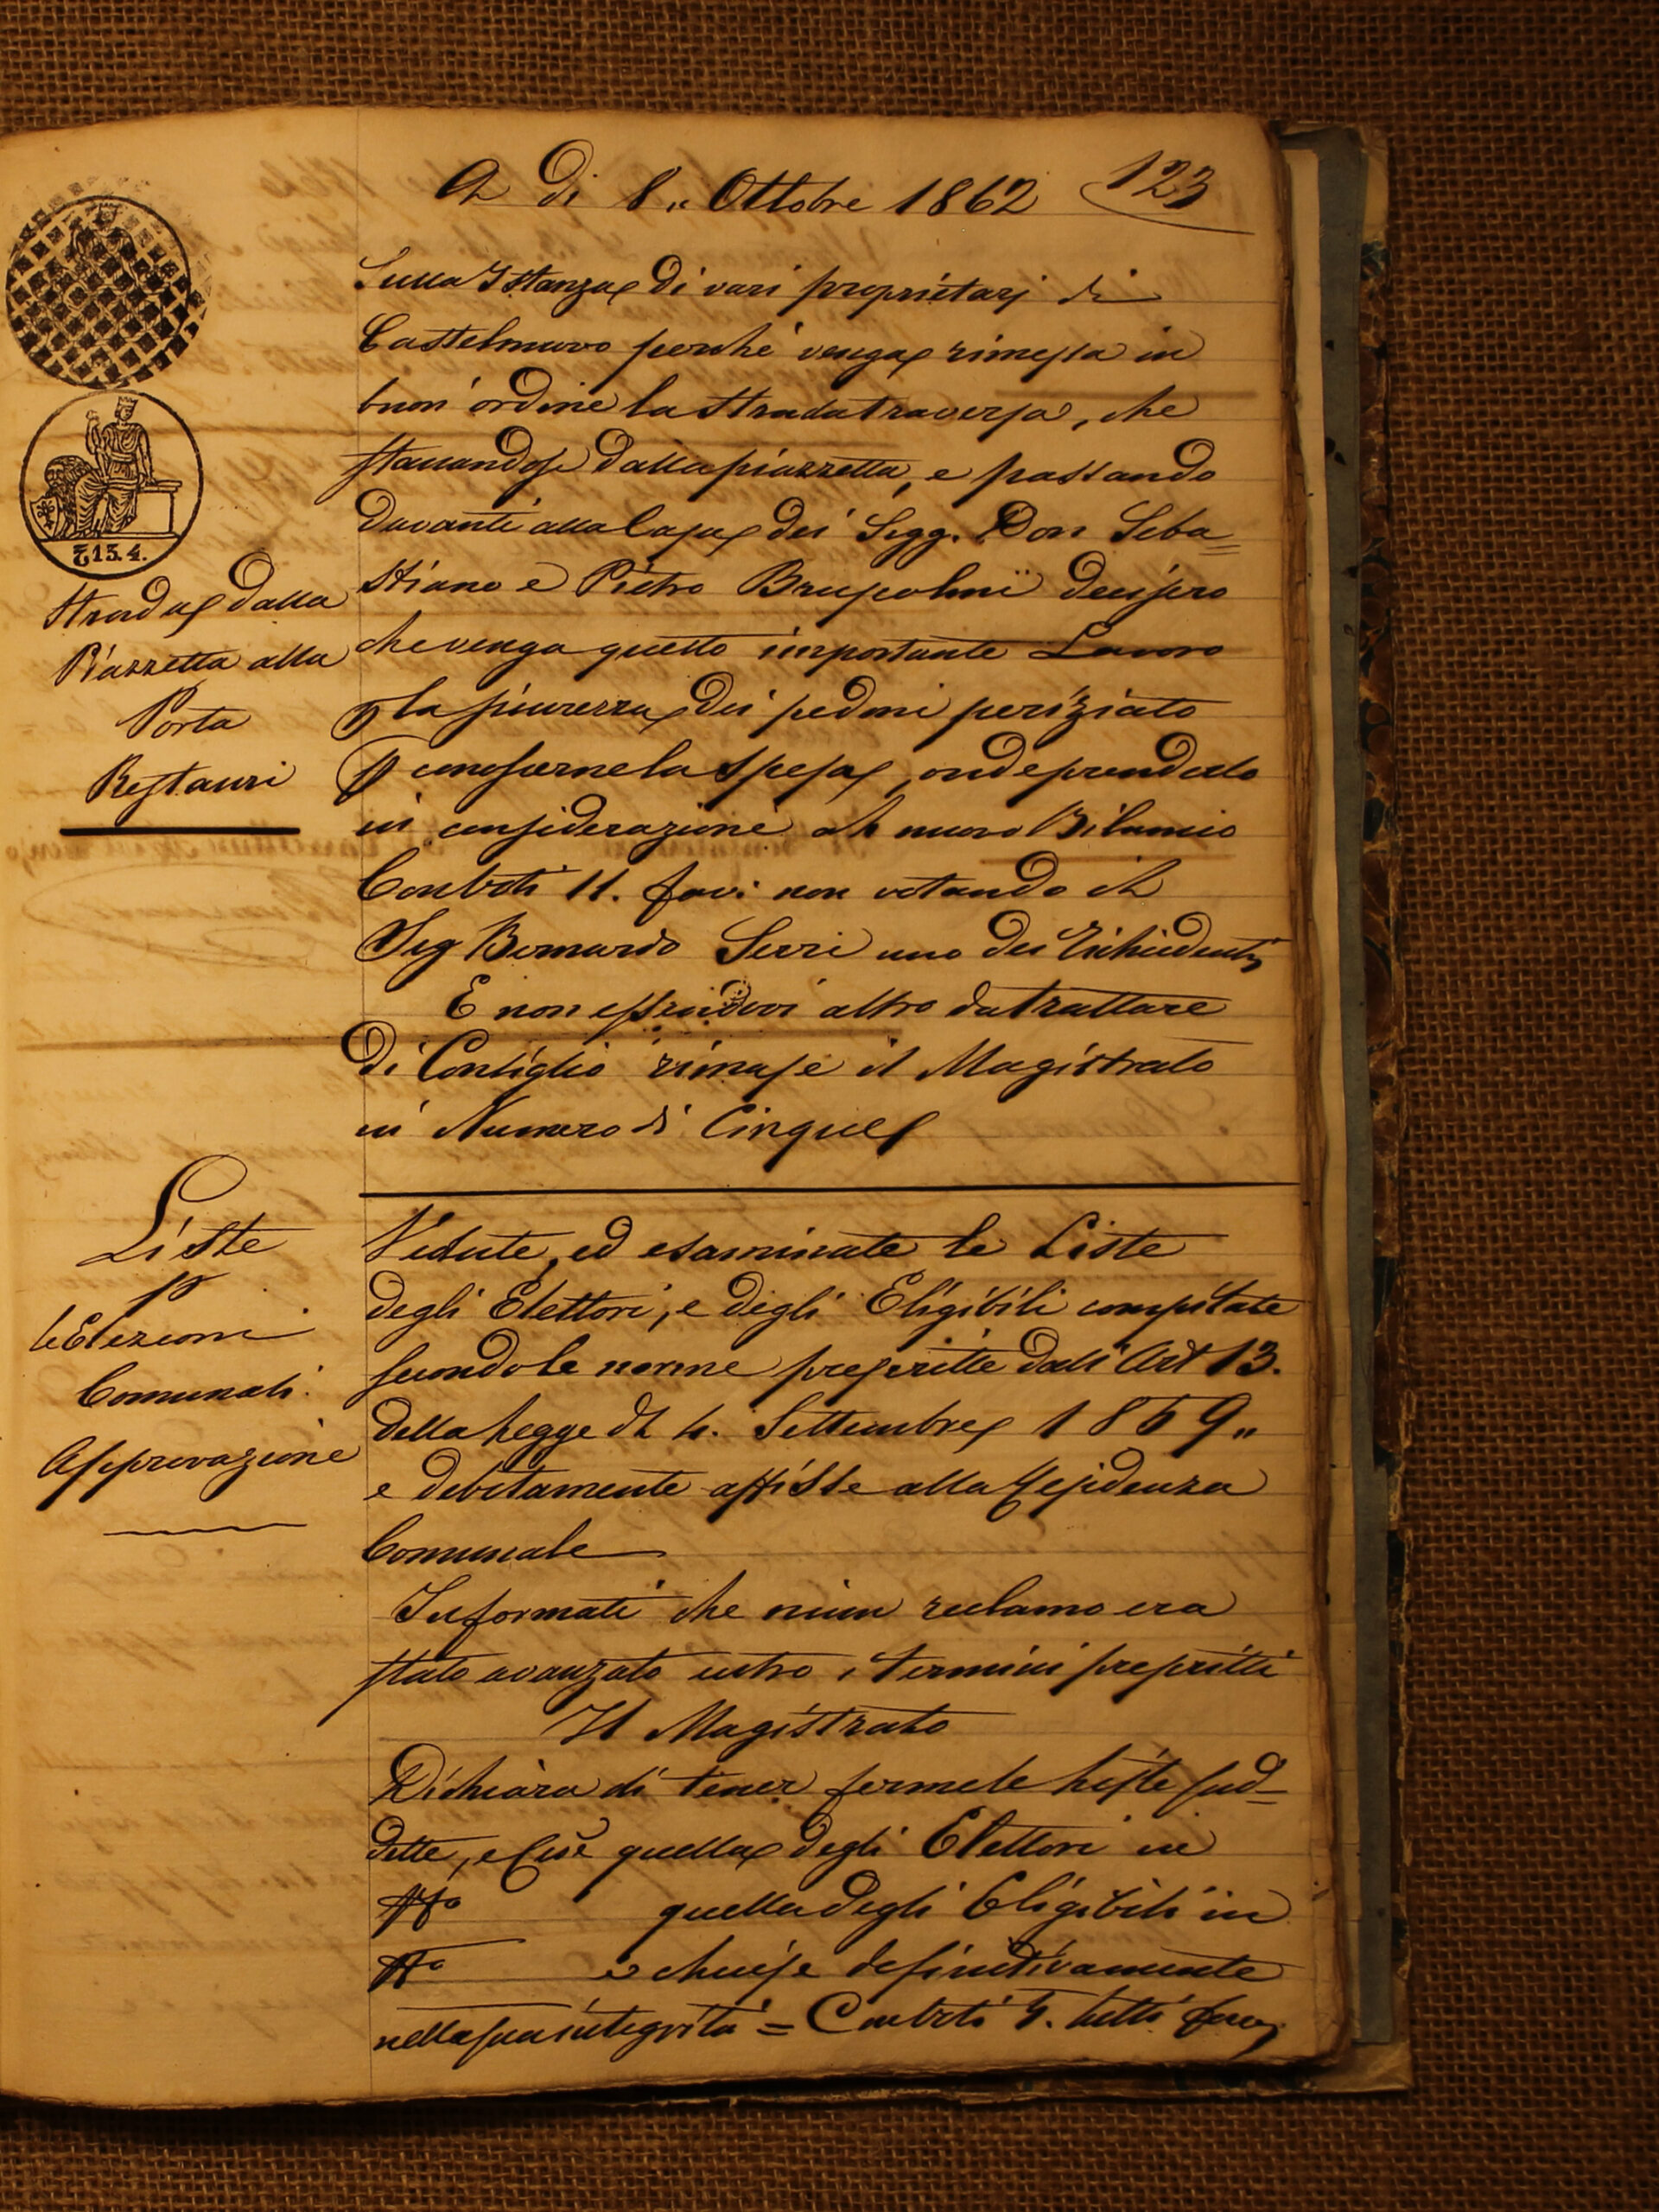 A Di 8 „ Ottobre 1862
123
Sulla Istanza di vari proprietarj di
Castelnuovo perchè venga rimessa in
buon' ordine la strada traversa, che
staccandosi dalla piazzetta, e passando
davanti alla Casa dei Sigg. Don Seba=
stiano e Pietro decisero
che venga questo importante Lavoro
p la sicurezza dei pedoni periziato
p conoscerne la spesa, onde prenderlo
in considerazione al nuovo Bilancio
Con Voti 11. favi non votando il
Sig Bernardo Serri uno dei Richiedenti
E non essendovi altro da trattare
di Consiglio rimase il Magistrato
in Numero di Cinque
£15.4.
Strada dalla
Piazzetta alla
Porta
Restauri
Liste
p
le Elezioni
Comunali.
Approvazione
Vedute, ed esaminate le Liste
degli Elettori, e degli Eligibili compilate
secondo le norme prescritte dall' Art 13.
della Legge del 4. Settembre 1859 „
e debitamente affisse alla Residenza
Comunale
Informati che niun reclamo era
stato avanzato entro i termini prescritti
Il Magistrato
Dichiara di tener ferme le Liste sud=
dette, e Cioè quella degli Elettori in
N° quella degli Eligibili in
N° e chiuse definitivamente
nella sua integrità = Con Voti 5. tutti favi